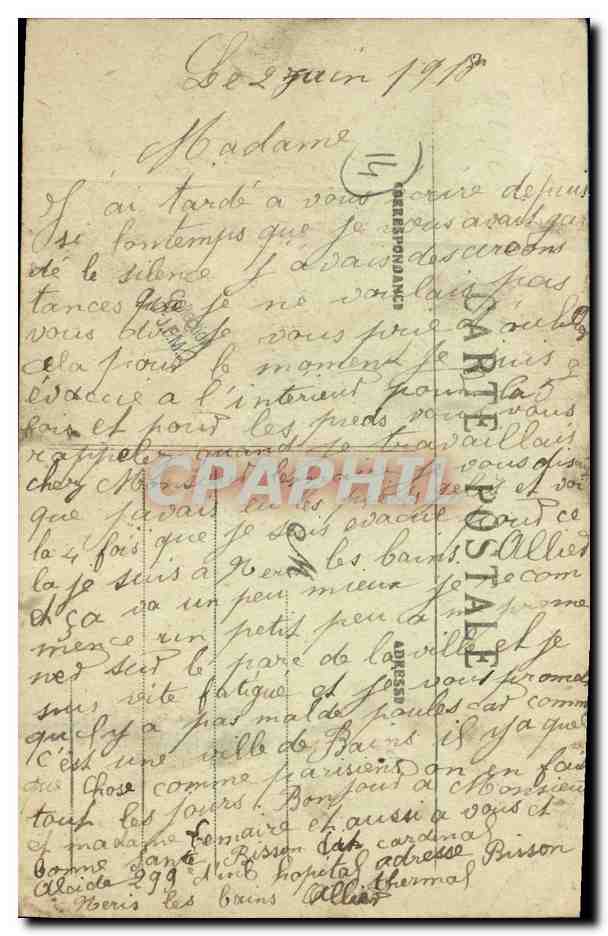 Le 2 Juin 1918
Madame
J'ai tardé a vous écrire depuis
si lontemps que je vous avait gar
dé le silence J avais des circons
tances que je ne voulais pas
vous dire Je vous prie d'oublier
cela pour le moment Je suis
évacué a l'interieur pour la
fois et pour les pieds vous vous
rappeler quand je travaillais
chez Mons Lemaire Je vous disais
que javais eu les pieds gelés et voi
la 4 fois que je suis evacué pour ce
la je suis a Neris les bains Allier
et ça va un peu mieux je recom
mence un petit peu a m prome
ner sur le parc de la ville et je
suis vite fatigué et je vous promet
qu'il y a pas mal de poules car comme
c'est une ville de Bains il y a quel
que chose comme parisiens on en fait
tout les jours. Bonjour a Monsieur
et madame Lemaire et aussi a vous et
bonne santé Bisson dit cardinal
Alcide 299 d'inf hopital adresse Bisson
thermal
Neris les bains Allier
14
CORRESPONDANCE
CARTE POSTALE
ADRESSE
M
CPAPHIL